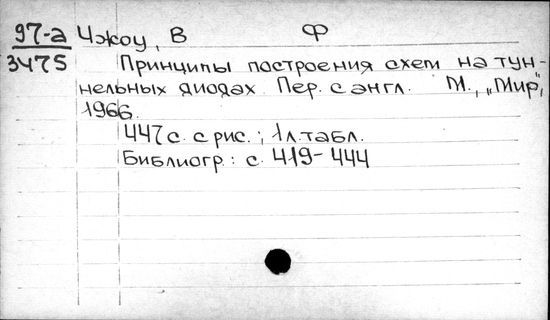 97-а Чжоу, В Ф
3475 Принципы построения схем на тун-
нельных диодах. Пер. с англ. М., „Мир",
1966.
447 с. с рис.; 1 л. табл.
Библиогр: с. 419-444